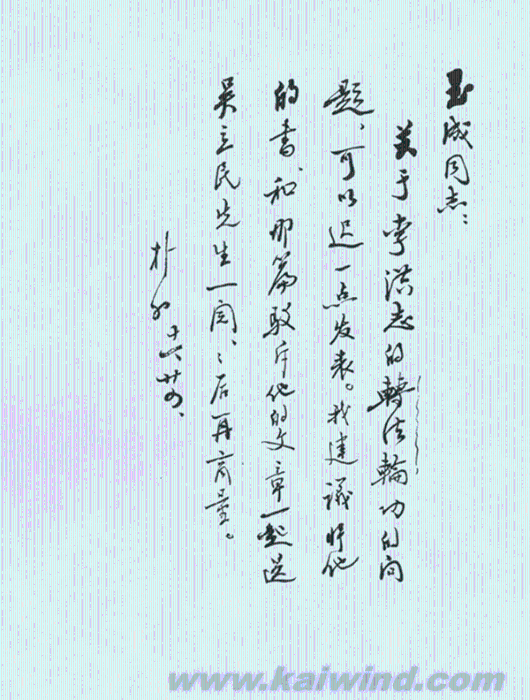 玉成同志：
关于李洪志的轉法輪功的问
题，可以迟一点发表。我建議将他
的書、和那篇駁斥他的文章一起送
吴立民先生一阅、后再商量。
朴初 廿四、
www.kaiwind.com